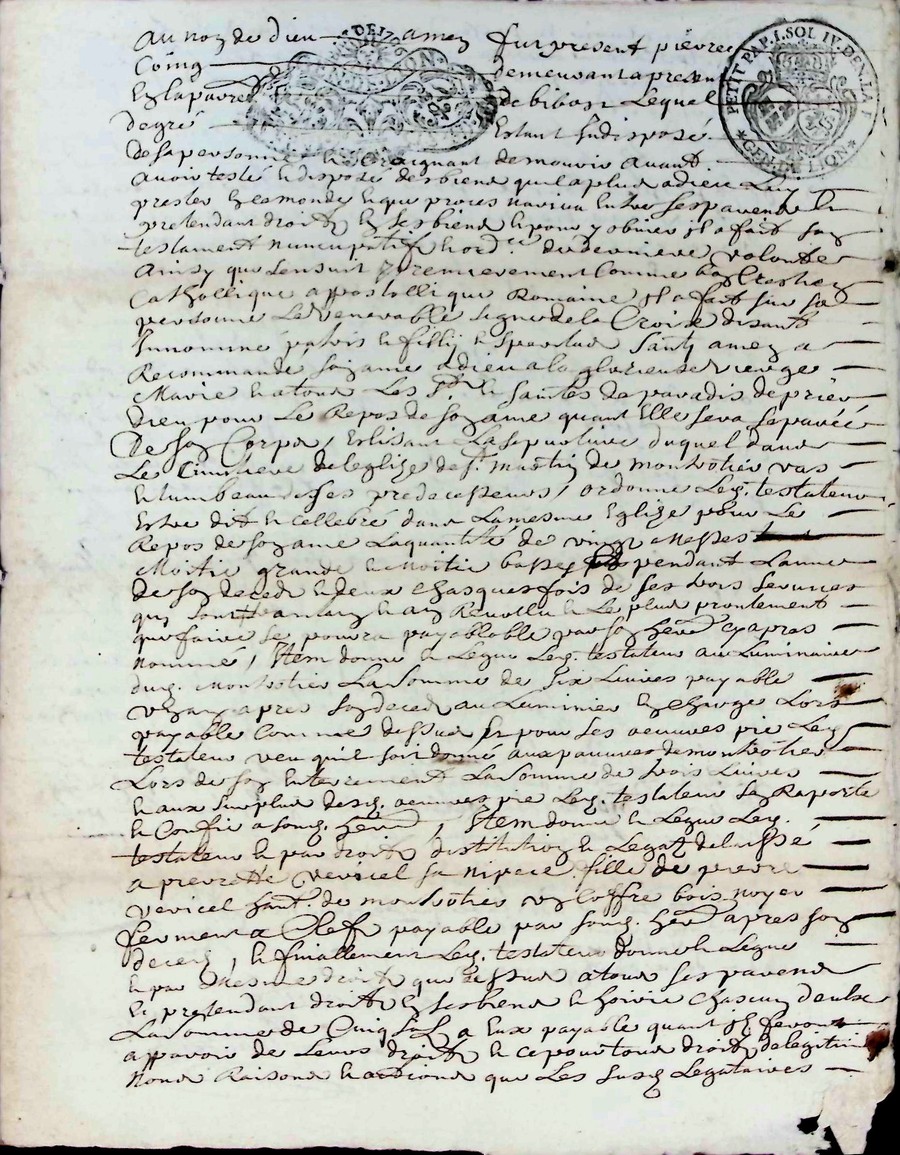 Au nom de Dieu amen fut present pierre
Coing demeurant a present
en la parr de bibost Lequel
de gré Estant Indisposé
de sa personne et Craignant de mourir avant
avoir testé et disposé des biens quil a plus a dieu luy
prester en ce monde et que proces navint entre ses parents et
pretendant droits en ses biens et pour y obvier il a fait son
testament nuncupatif et ord.re de derniere volonté
Ainsy que sensuit premierement Comme bon Crestien
Cathollique appostollique Romaine il a fait sur sa
personne Le venerable signe de la Croix disant
In nomine patris et fillij et spiritus santi amen a
Recommandé son ame a dieu a la glorieuse vierge
Marie et a tous Les S.ts et saintes de paradis de prier
dieu pour Le Repos de son ame quant Elle sera separéé
De son Corps, Eslisant La sepulture duquel dans
Les Cimitiere de leglise de S.t martin de montrotier vas
et tumbeau de ses predecesseurs, ordonne Led. testateur
Estre dit et cellebré dans La mesme Eglise pour Le
Repos de son ame La quantité de vingt Messes
Moitie grande et Moitie basses pendant Lannee
de son deced et deux chasques fois de ses trois services
quy sont an et an Revollu et Le plus prontement
que faire se pourra payable par son her. cy apres
nommé, Item donne et Legue Led. testateur au Luminaire
dud. Montrotier La Somme de six Livres payable
un an apres son deced au Luminier en charge Lors
payable Comme dessus Et pour Les oeuvres pie Led.
testateur veu qu'il soit donné aux pauvres de montrotier
Lors de son Enterrement La Somme de trois Livres
et aux surplus desd. oeuvres pie Led. testateur sen Raporte
et Confie a sond. her., Item donne et Legue Led.
testateur et par droit distitution et Legat delaissé
a pierrette vericel sa niepce fille de pierre
vericel hant. de montrotier un coffre bois noyer
fermant a Clef payable par sond. her. apres son
deced, et finallement Led. testateur donne et Legue
et par mesme droit que dessus a tous ses parents
et pretendant droits en ses biens et hoirie chascun deulx
La Somme de Cinq sols a Eux payable quant ils feront
apparoir de Leurs droits et ce pour tous droits de legitime
noms Raisons et actions que Les susd. Legataires
DE 1716
PETIT PAP. I. SOL IV. DEN. LA F
GEN. DE LION